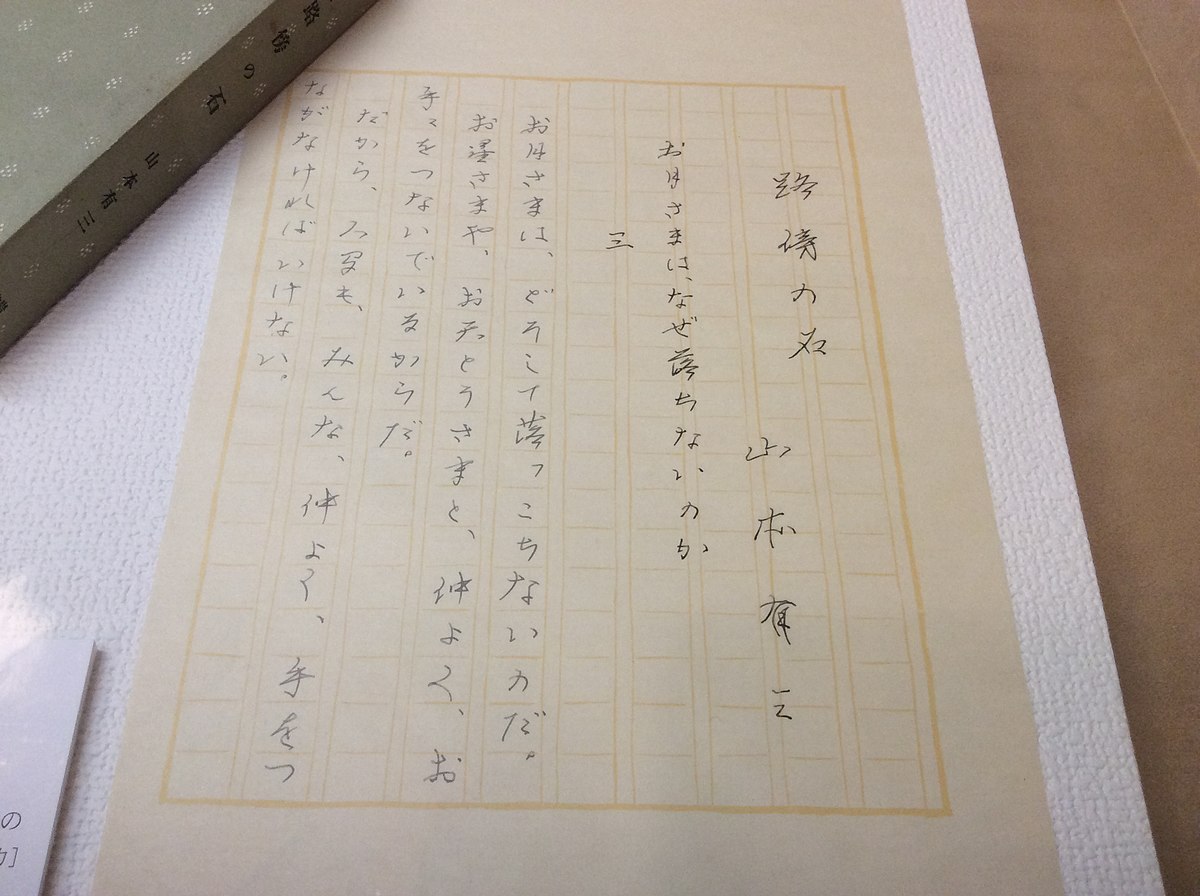 路傍の石
山本有三
お月さまは、なぜ落ちないのか
三
お月さまは、どうして落っこちないのだ。
お星さまや、お天とうさまと、仲よく、お
手々をつないでいるからだ。
だから、人間も、みんな、仲よく、手をつ
ながなければいけない。
路傍の石 山本有三
の
カ]